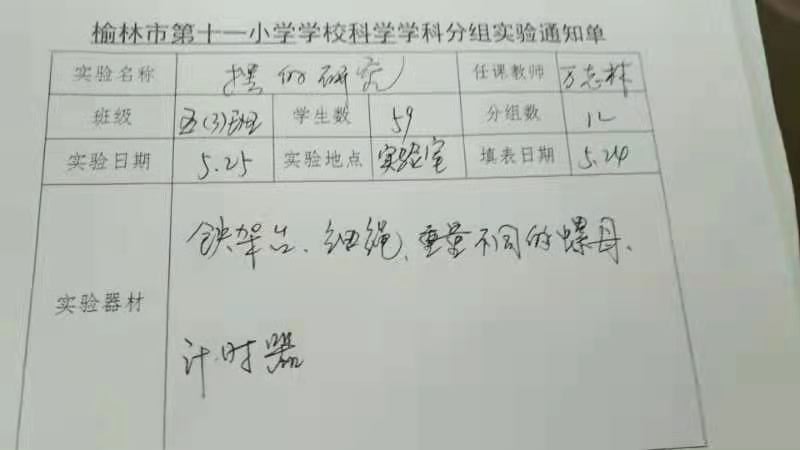 榆林市第十一小学学校科学学科分组实验通知单
实验名称 摆的研究 任课教师 万志林
班级 五(3)班 学生数 59 分组数 12
实验日期 5.25 实验地点 实验室 填表日期 5.24
实验器材 铁架台、细绳、重量不同的螺母、
计时器